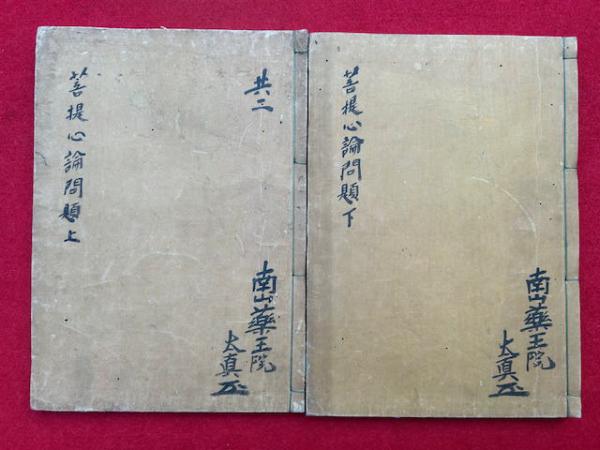 菩提心論問題上
共二
南山藥王院
太真
菩提心論問題下
南山藥王院
太真